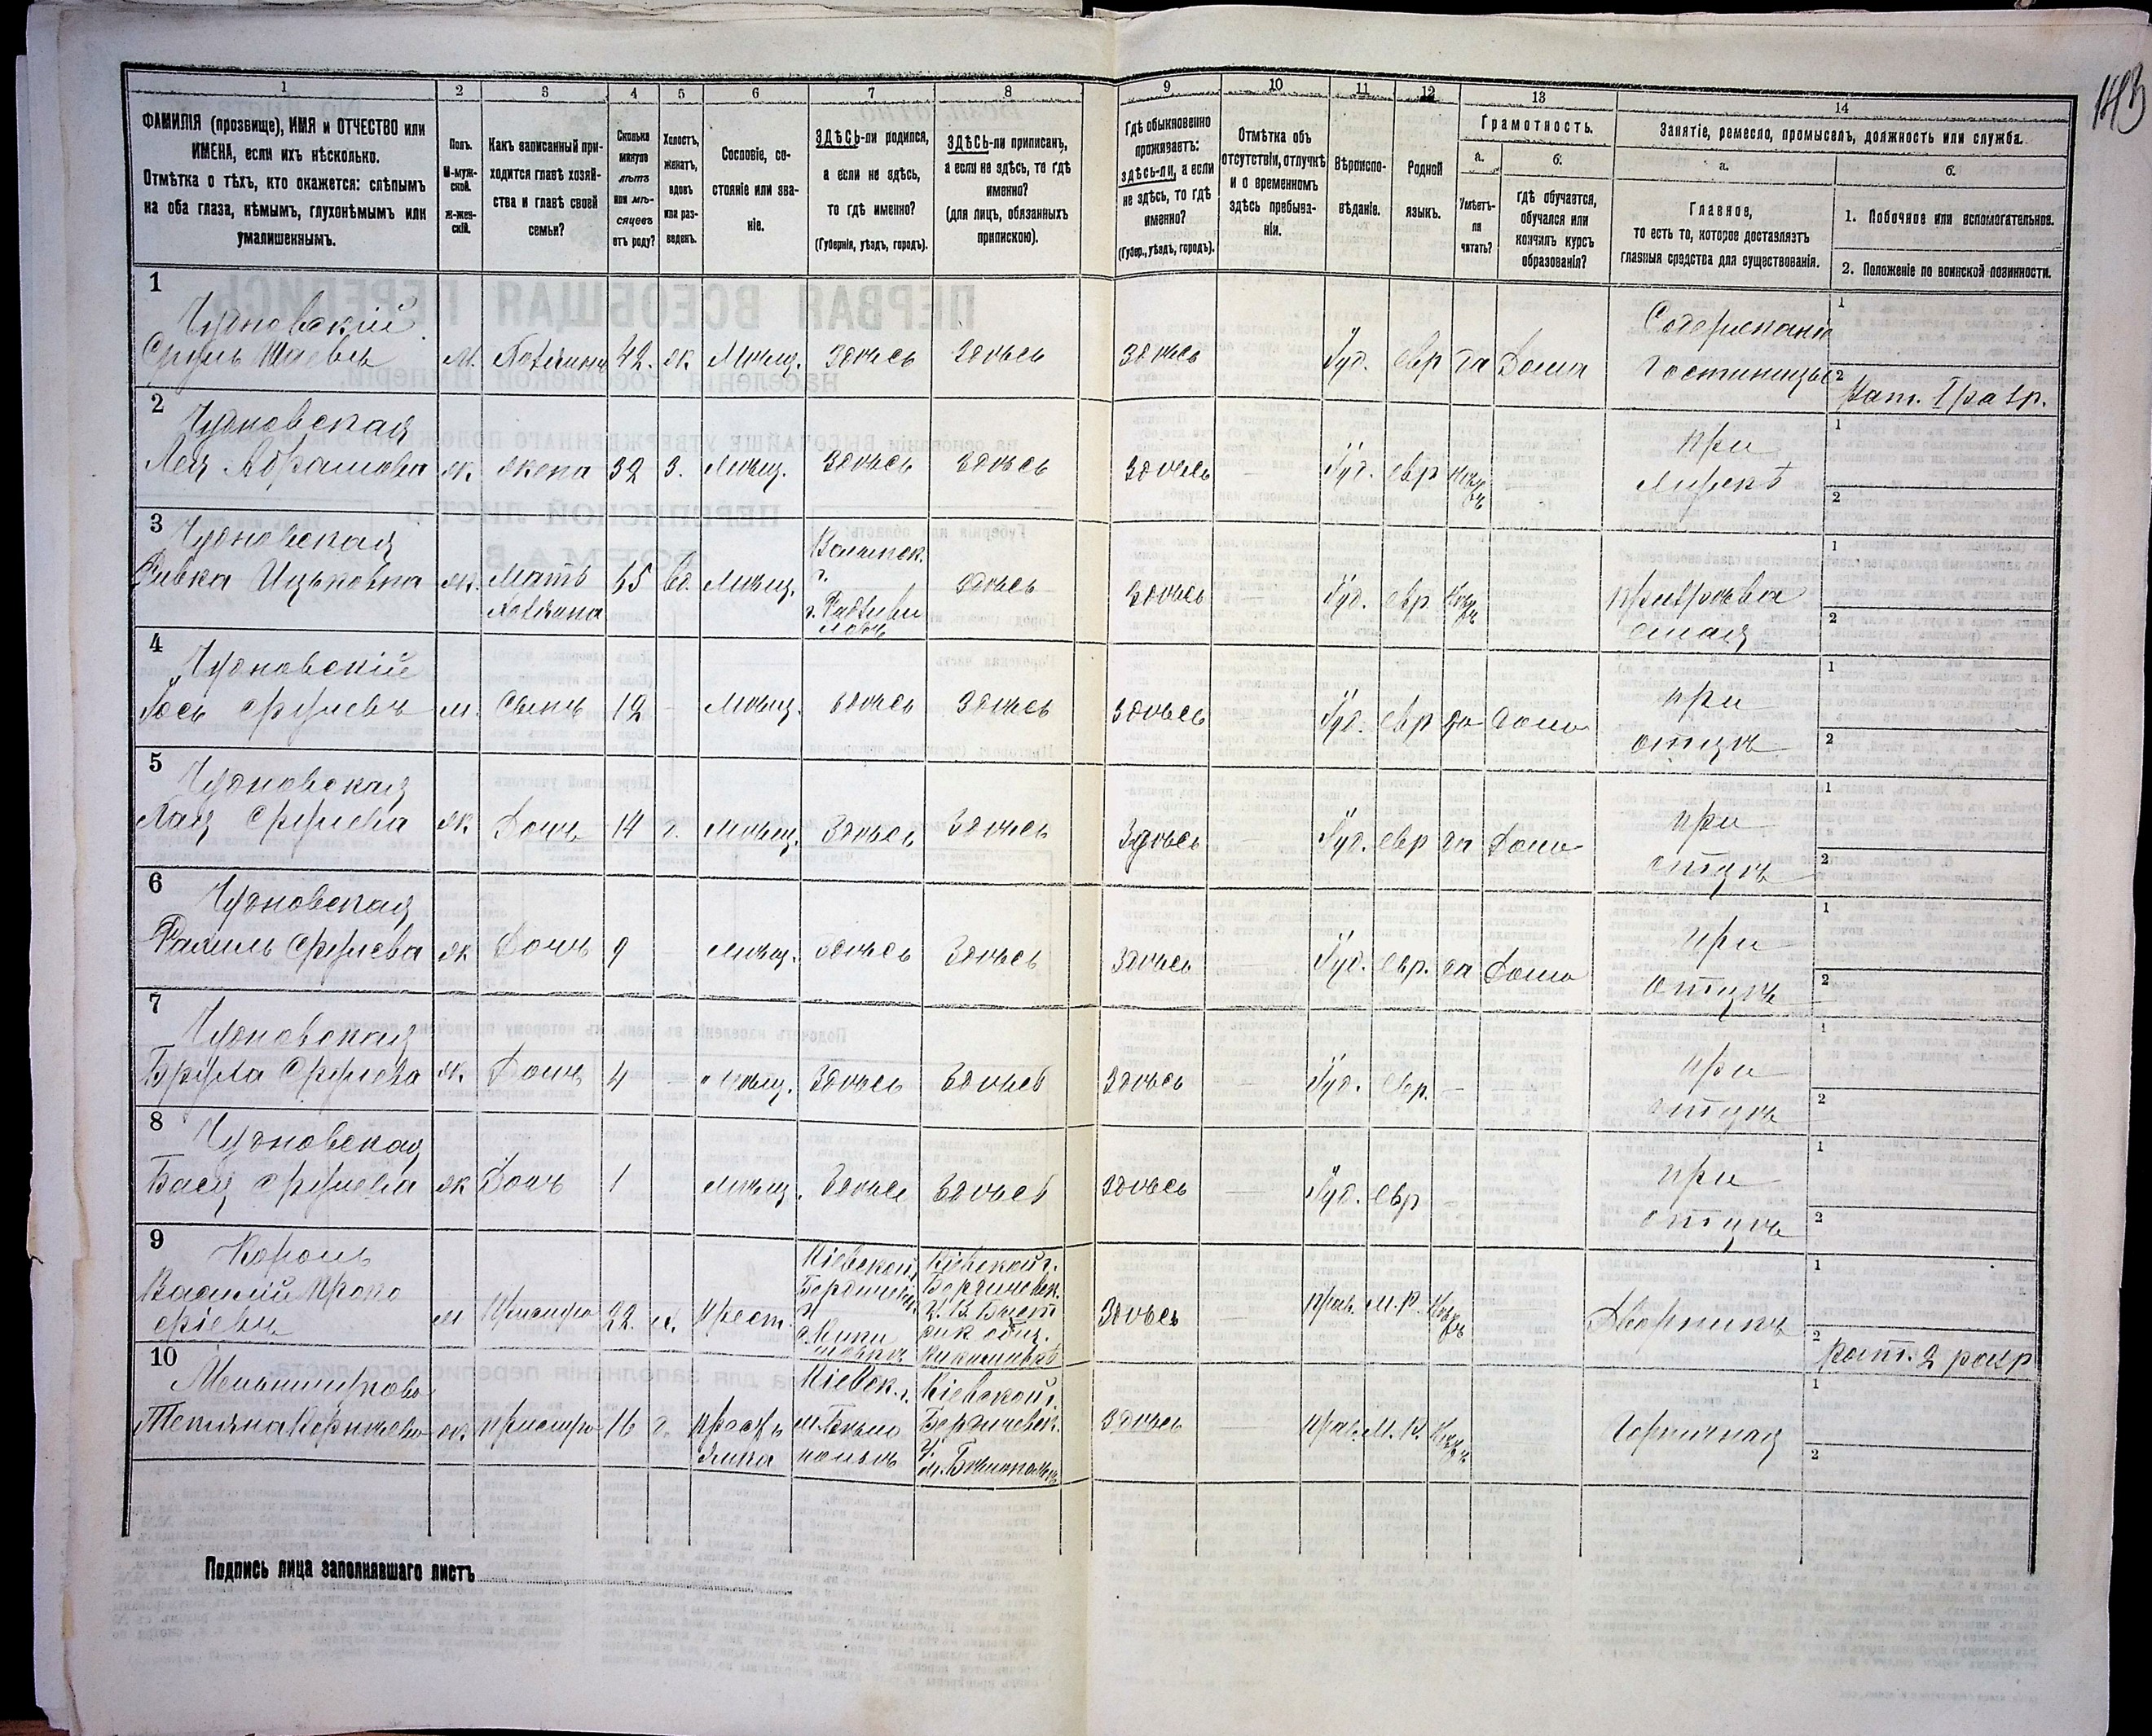 143
1 2 3 4 5 6 7 8 9 10 11 12 13 14
ФАМИЛІЯ (прозвище), ИМЯ и ОТЧЕСТВО или
ИМЕНА, если ихъ нѣсколько.
Отмѣтка о тѣхъ, кто окажется: слѣпымъ
на оба глаза, нѣмымъ, глухонѣмымъ или
умалишеннымъ.
Полъ.
М-муж-
ской.
Ж-жен-
скій.
Какъ записанный при-
ходится главѣ хозяй-
ства и главѣ своей
семьи?
Сколько
минуло
лѣтъ
или мѣ-
сяцевъ
отъ роду?
Холостъ,
женатъ,
вдовъ
или раз-
веденъ.
Сословіе, со-
стояніе или зва-
ніе.
ЗДѢСЬ-ли родился,
а если не здѣсь,
то гдѣ именно?
(Губернія, уѣздъ, городъ).
ЗДѢСЬ-ли приписанъ,
а если не здѣсь, то гдѣ
именно?
(для лицъ, обязанныхъ
припискою).
Гдѣ обыкновенно
проживаетъ:
здѣсь-ли, а если
не здѣсь, то гдѣ
именно?
(Губер., уѣздъ, городъ).
Отмѣтка объ
отсутствіи, отлучкѣ
и о временномъ
здѣсь пребыва-
ніи.
Вѣроиспо-
вѣданіе.
Родной
языкъ.
Грамотность.
а.
Умѣетъ-
ли
читать?
б.
гдѣ обучается,
обучался или
кончилъ курсъ
образованія?
Занятіе, ремесло, промыселъ, должность или служба.
а.
Главное,
то есть то, которое доставляетъ
главныя средства для существованія.
б.
1. Побочное или вспомогательное.
2. Положеніе по воинской повинности.
1
Чудновскій
Сруль Шаевъ м. Хозяинъ 42. ж Мѣщ. Здѣсь Здѣсь Здѣсь Іуд. евр да Дома
Содержаніе
гостиницы
1
2 Рат. I разр.
2
Чудновская
Лея Абрамова ж. жена 32 З. Мѣщ. Здѣсь Здѣсь Здѣсь — Іуд. евр
при
1
2
3
Чудновская
Ривка Ицьковна ж. Мать
хозяина
вд. Мѣщ.
г.
г. Радзиви
ловъ
Здѣсь Здѣсь — Іуд. евр
1
2
4
Чудновскій
Іось Срулевъ м. Сынъ 12 — Мѣщ. Здѣсь Здѣсь Здѣсь — Іуд. евр да дома
при
отцѣ
1
2
5
Чудновская
Хая Срулева ж Дочь 14 д. Мѣщ. Здѣсь Здѣсь Здѣсь — Іуд. евр да Дома
при
отцѣ
1
2
6
Чудновская
Рахиль Срулева ж Дочь 9 — Мѣщ. Здѣсь Здѣсь Здѣсь — Іуд. евр. да Дома
при
отцѣ
1
2
7
Чудновская
Срулева ж. Дочь 4 — Мѣщ. Здѣсь Здѣсь Здѣсь — Іуд. евр. —
при
отцѣ
1
2
8
Чудновская
Бася Срулева ж Дочь 1 Мѣщ. Здѣсь Здѣсь Здѣсь — Іуд. евр —
при
отцѣ
1
2
9
Король
Василій Проко
фіевъ
м Прислуга 22. х. Крест.
Кіевской г.
Бердичевск.
Кіевской г.
Бердичевск.
Здѣсь прав. М.Р.
Дворникъ
1
2 рат. 2 разр
10
Татьяна ж. прислуга 16 д. крестья
янка
Кіевск. г.
м. Бѣло
полье
Кіевской г.
Бердичевск.
у.
м. Бѣлополье
Здѣсь — прав. М.Р.
Горничная
1
2
Подпись лица заполнявшаго листъ